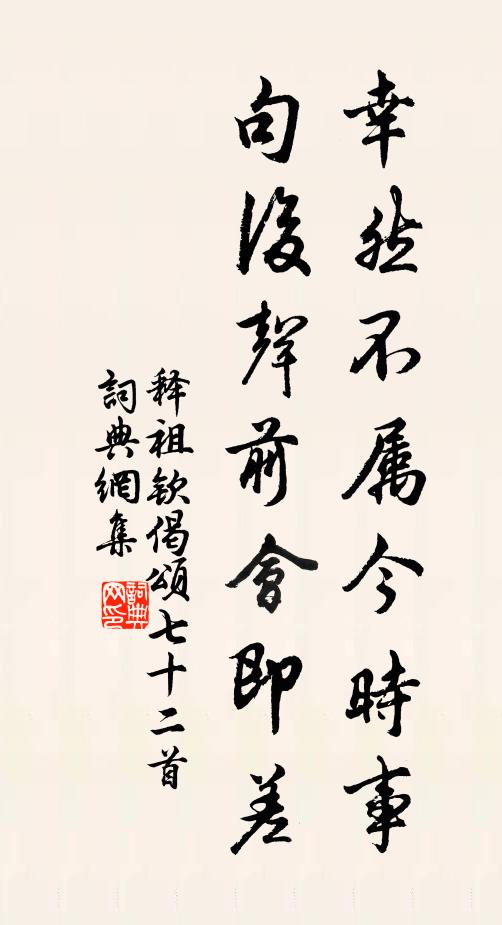 幸然不属今時事
句後聲前會即差
释祖欽偈頌七十二首
詞典網集
詞典網印